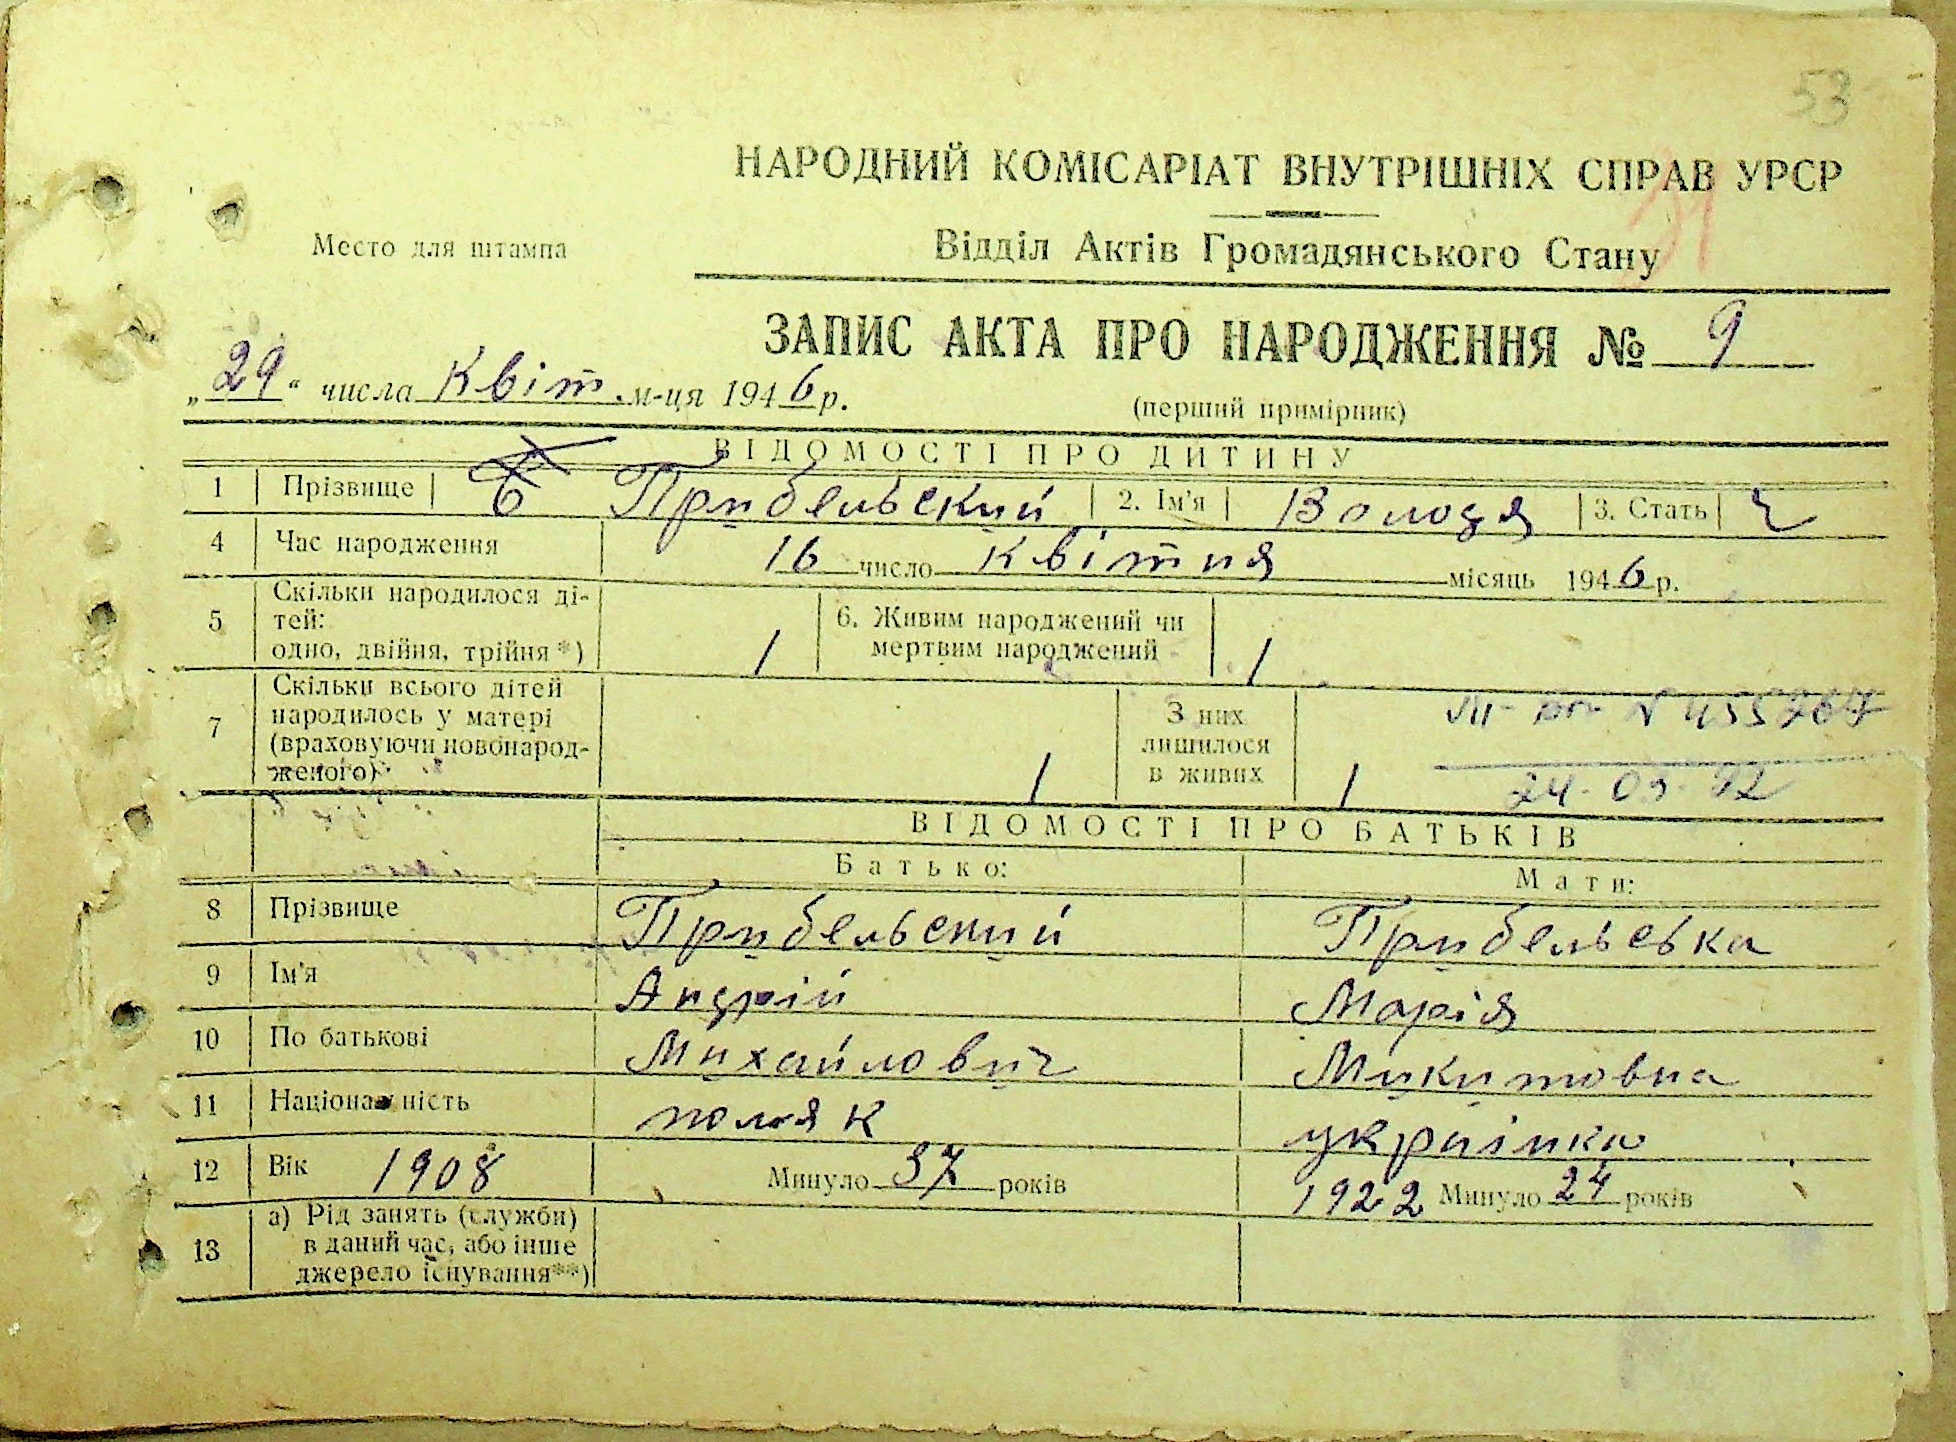 53
НАРОДНИЙ КОМІСАРІАТ ВНУТРІШНІХ СПРАВ УРСР
Место для штампа
Відділ Актів Громадянського Стану
31
ЗАПИС АКТА ПРО НАРОДЖЕННЯ № 9
„29“ числа Квіт. м-ця 1946 р.
(перший примірник)
ВІДОМОСТІ ПРО ДИТИНУ
1 Прізвище Прибельский 2. Ім'я Володя 3. Стать ч
4 Час народження 16 число квітня місяць 1946 р.
5 Скільки народилося дітей: одно, двійня, трійня*) 1 6. Живим народжений чи мертвим народжений 1
7 Скільки всього дітей народилось у матері (враховуючи новонародженого) 1 З них лишилося в живих 1
24-09-92
ВІДОМОСТІ ПРО БАТЬКІВ
Батько: Мати:
8 Прізвище Прибельский Прибельська
9 Ім'я Андрій Марія
10 По батькові Михайлович Микитовна
11 Національність поляк украінка
12 Вік 1908 Минуло 37 років 1922 Минуло 24 років
13 а) Рід занять (служби) в даний час, або інше джерело існування**)